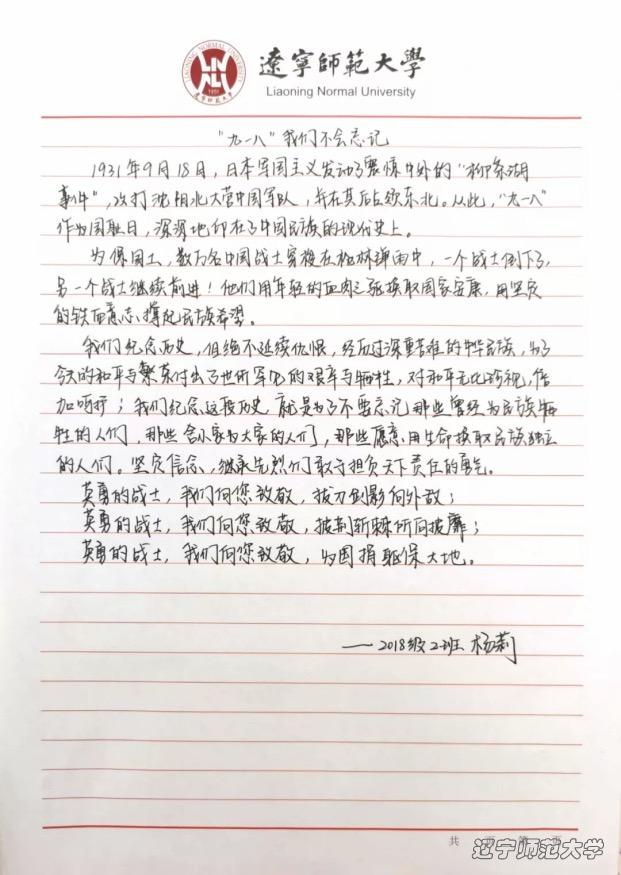 LIAONING NORMAL UNIVERSITY
1951
遼寧師範大學
Liaoning Normal University
"九一八"我们不会忘记
1931年9月18日，日本军国主义发动了震惊中外的"柳条湖
事件"，攻打沈阳北大营中国军队，并在其后占领东北。从此，"九一八"
作为国耻日，深深地印在了中国民族的现代史上。
为保国土，数万名中国战士穿梭在枪林弹雨中，一个战士倒下了，
另一个战士继续前进！他们用年轻的血肉之躯换取国家安康，用坚定
的铁血意志撑起民族希望。
我们纪念历史，但绝不延续仇恨，经历过深重苦难的中华民族，为了
今天的和平与繁荣付出了世所罕见的艰辛与牺牲，对和平无比珍视，倍
加呵护；我们纪念这段历史就是为了不要忘记那些曾经为民族牺
牲的人们，那些舍小家为大家的人们，那些愿意用生命换取民族独立
的人们。坚定信念，继承先烈们敢于担负天下责任的勇气。
英勇的战士，我们向您致敬，拔刀剑影向外敌；
英勇的战士，我们向您致敬，披荆斩棘所向披靡；
英勇的战士，我们向您致敬，为国捐躯保大地。
——2018级2班 杨莉
共 页 第 页
辽宁师范大学